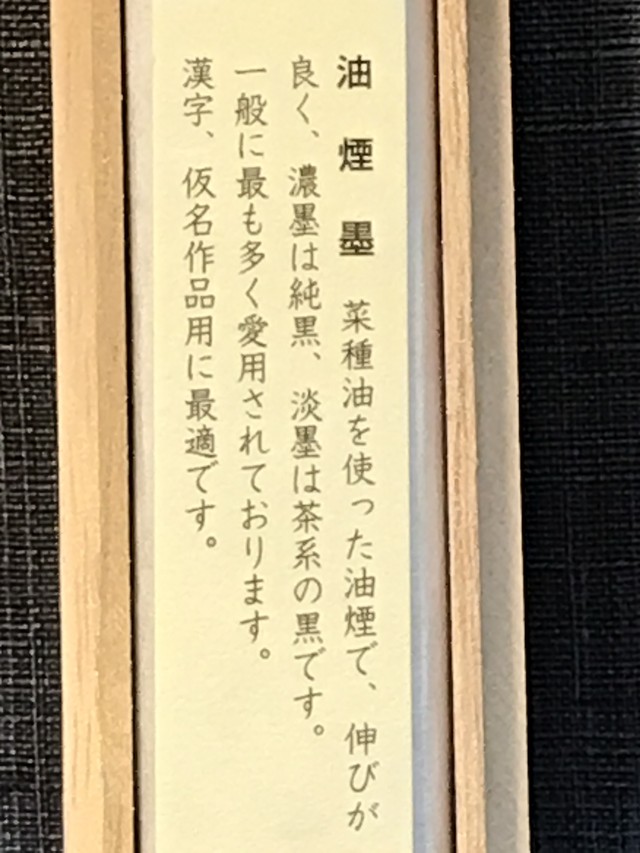 油煙墨 菜種油を使った油煙で、伸びが
良く、濃墨は純黒、淡墨は茶系の黒です。
一般に最も多く愛用されております。
漢字、仮名作品用に最適です。